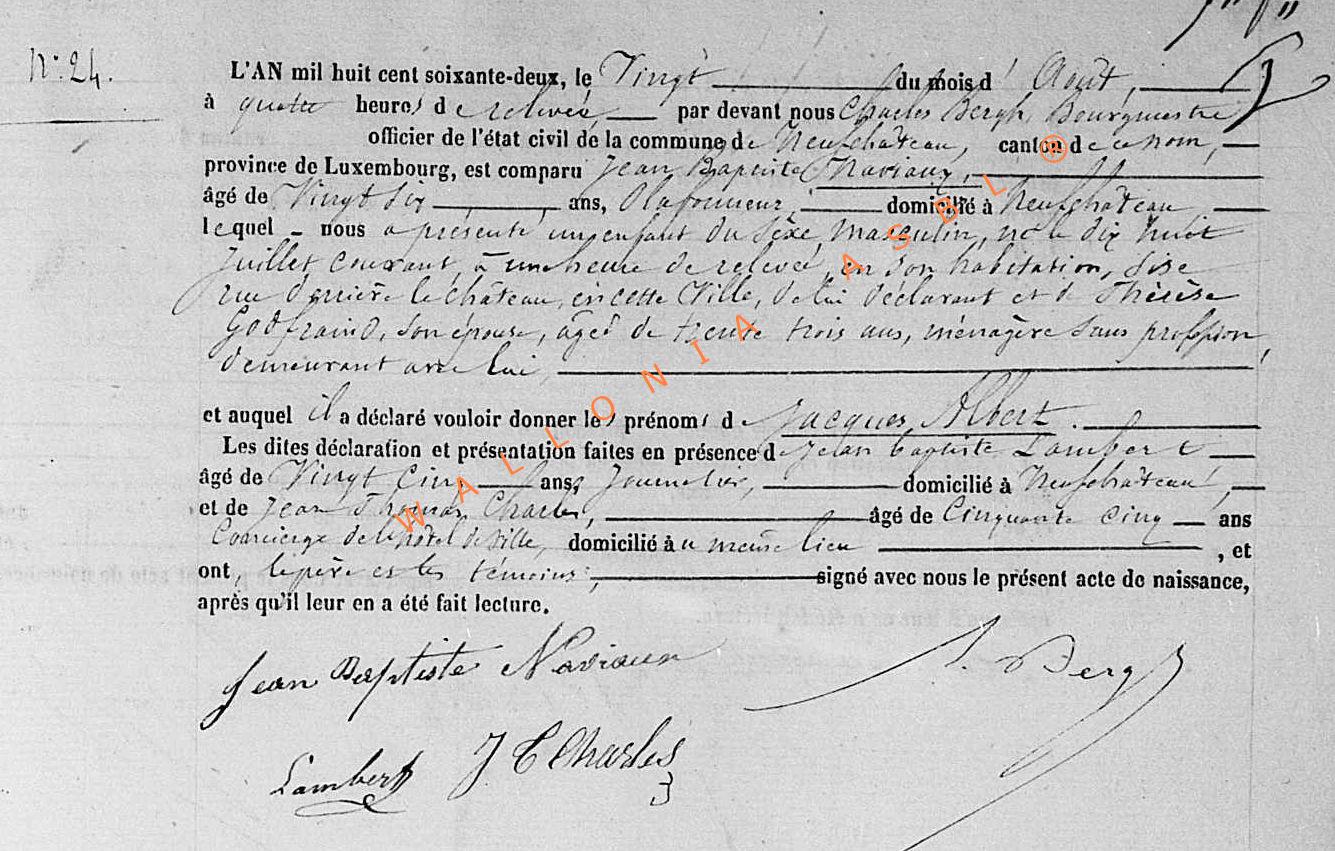 N° 24.
L'AN mil huit cent soixante-deux, le Vingt du mois d' Août,
à quatre heures de relevée par devant nous Charles Bergh, Bourgmestre
officier de l'état civil de la commune de Neufchâteau, canton de ce nom,
province de Luxembourg, est comparu Jean Baptiste Naviaux,
âgé de Vingt six ans, Plafonneur, domicilié à Neufchâteau
lequel nous a présenté un enfant du sexe masculin, né le dix huit
Juillet courant, à une heure de relevée, en son habitation, sise
rue derrière le château, en cette Ville, de lui déclarant et de Thérèse
Godfraind, son épouse, âgée de trente trois ans, ménagère sans profession,
demeurant avec lui,
et auquel il a déclaré vouloir donner les prénoms de Jacques Albert.
Les dites déclaration et présentation faites en présence de Jean Baptiste Lambert
âgé de Vingt Cinq ans, Journalier, domicilié à Neufchâteau,
et de Jean Thomas Charles, âgé de Cinquante cinq ans
Concierge de l'hôtel de Ville, domicilié au même lieu , et
ont, le père et les témoins, signé avec nous le présent acte de naissance,
après qu'il leur en a été fait lecture.
Jean Baptiste Naviaux
Bergh
Lambert J T Charles
WALLONIA ASBL ®